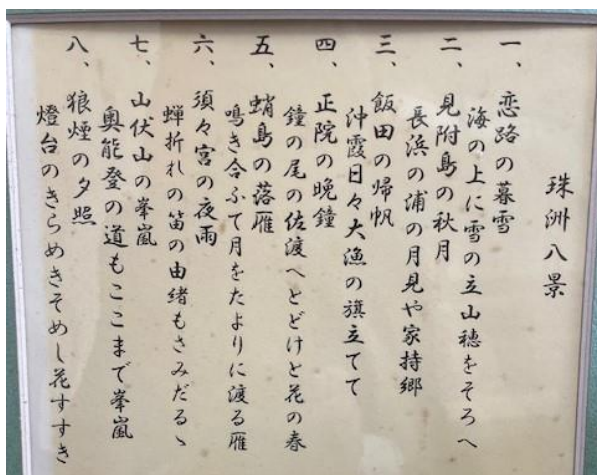 珠洲八景
一、恋路の暮雪
海の上に雪の立山穂をそろへ
二、見附島の秋月
長浜の浦の月見や家持郷
三、飯田の帰帆
沖霞日々大漁の旗立てて
四、正院の晩鐘
鐘の尾の佐渡へとどけと花の春
五、蛸島の落雁
鳴き合ふて月をたよりに渡る雁
六、須々宮の夜雨
蝉折れの笛の由緒もさみだるゝ
七、山伏山の峯嵐
奥能登の道もここまで峯嵐
八、狼煙の夕照
燈台のきらめきそめし花すすき